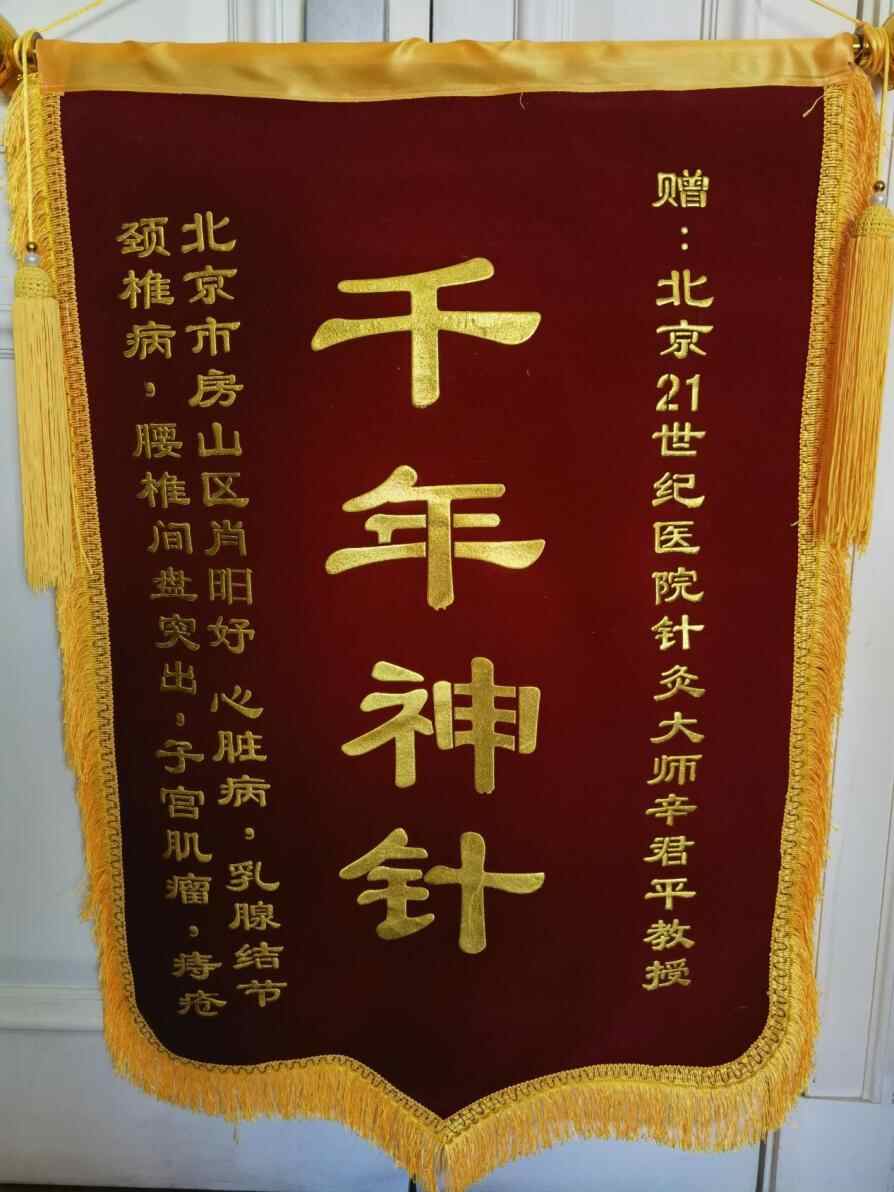 赠：北京21世纪医院针灸大师辛君平教授
千年神针
北京市房山区肖阳好 心脏病，乳腺结节
颈椎病，腰椎间盘突出，子宫肌瘤，痔疮